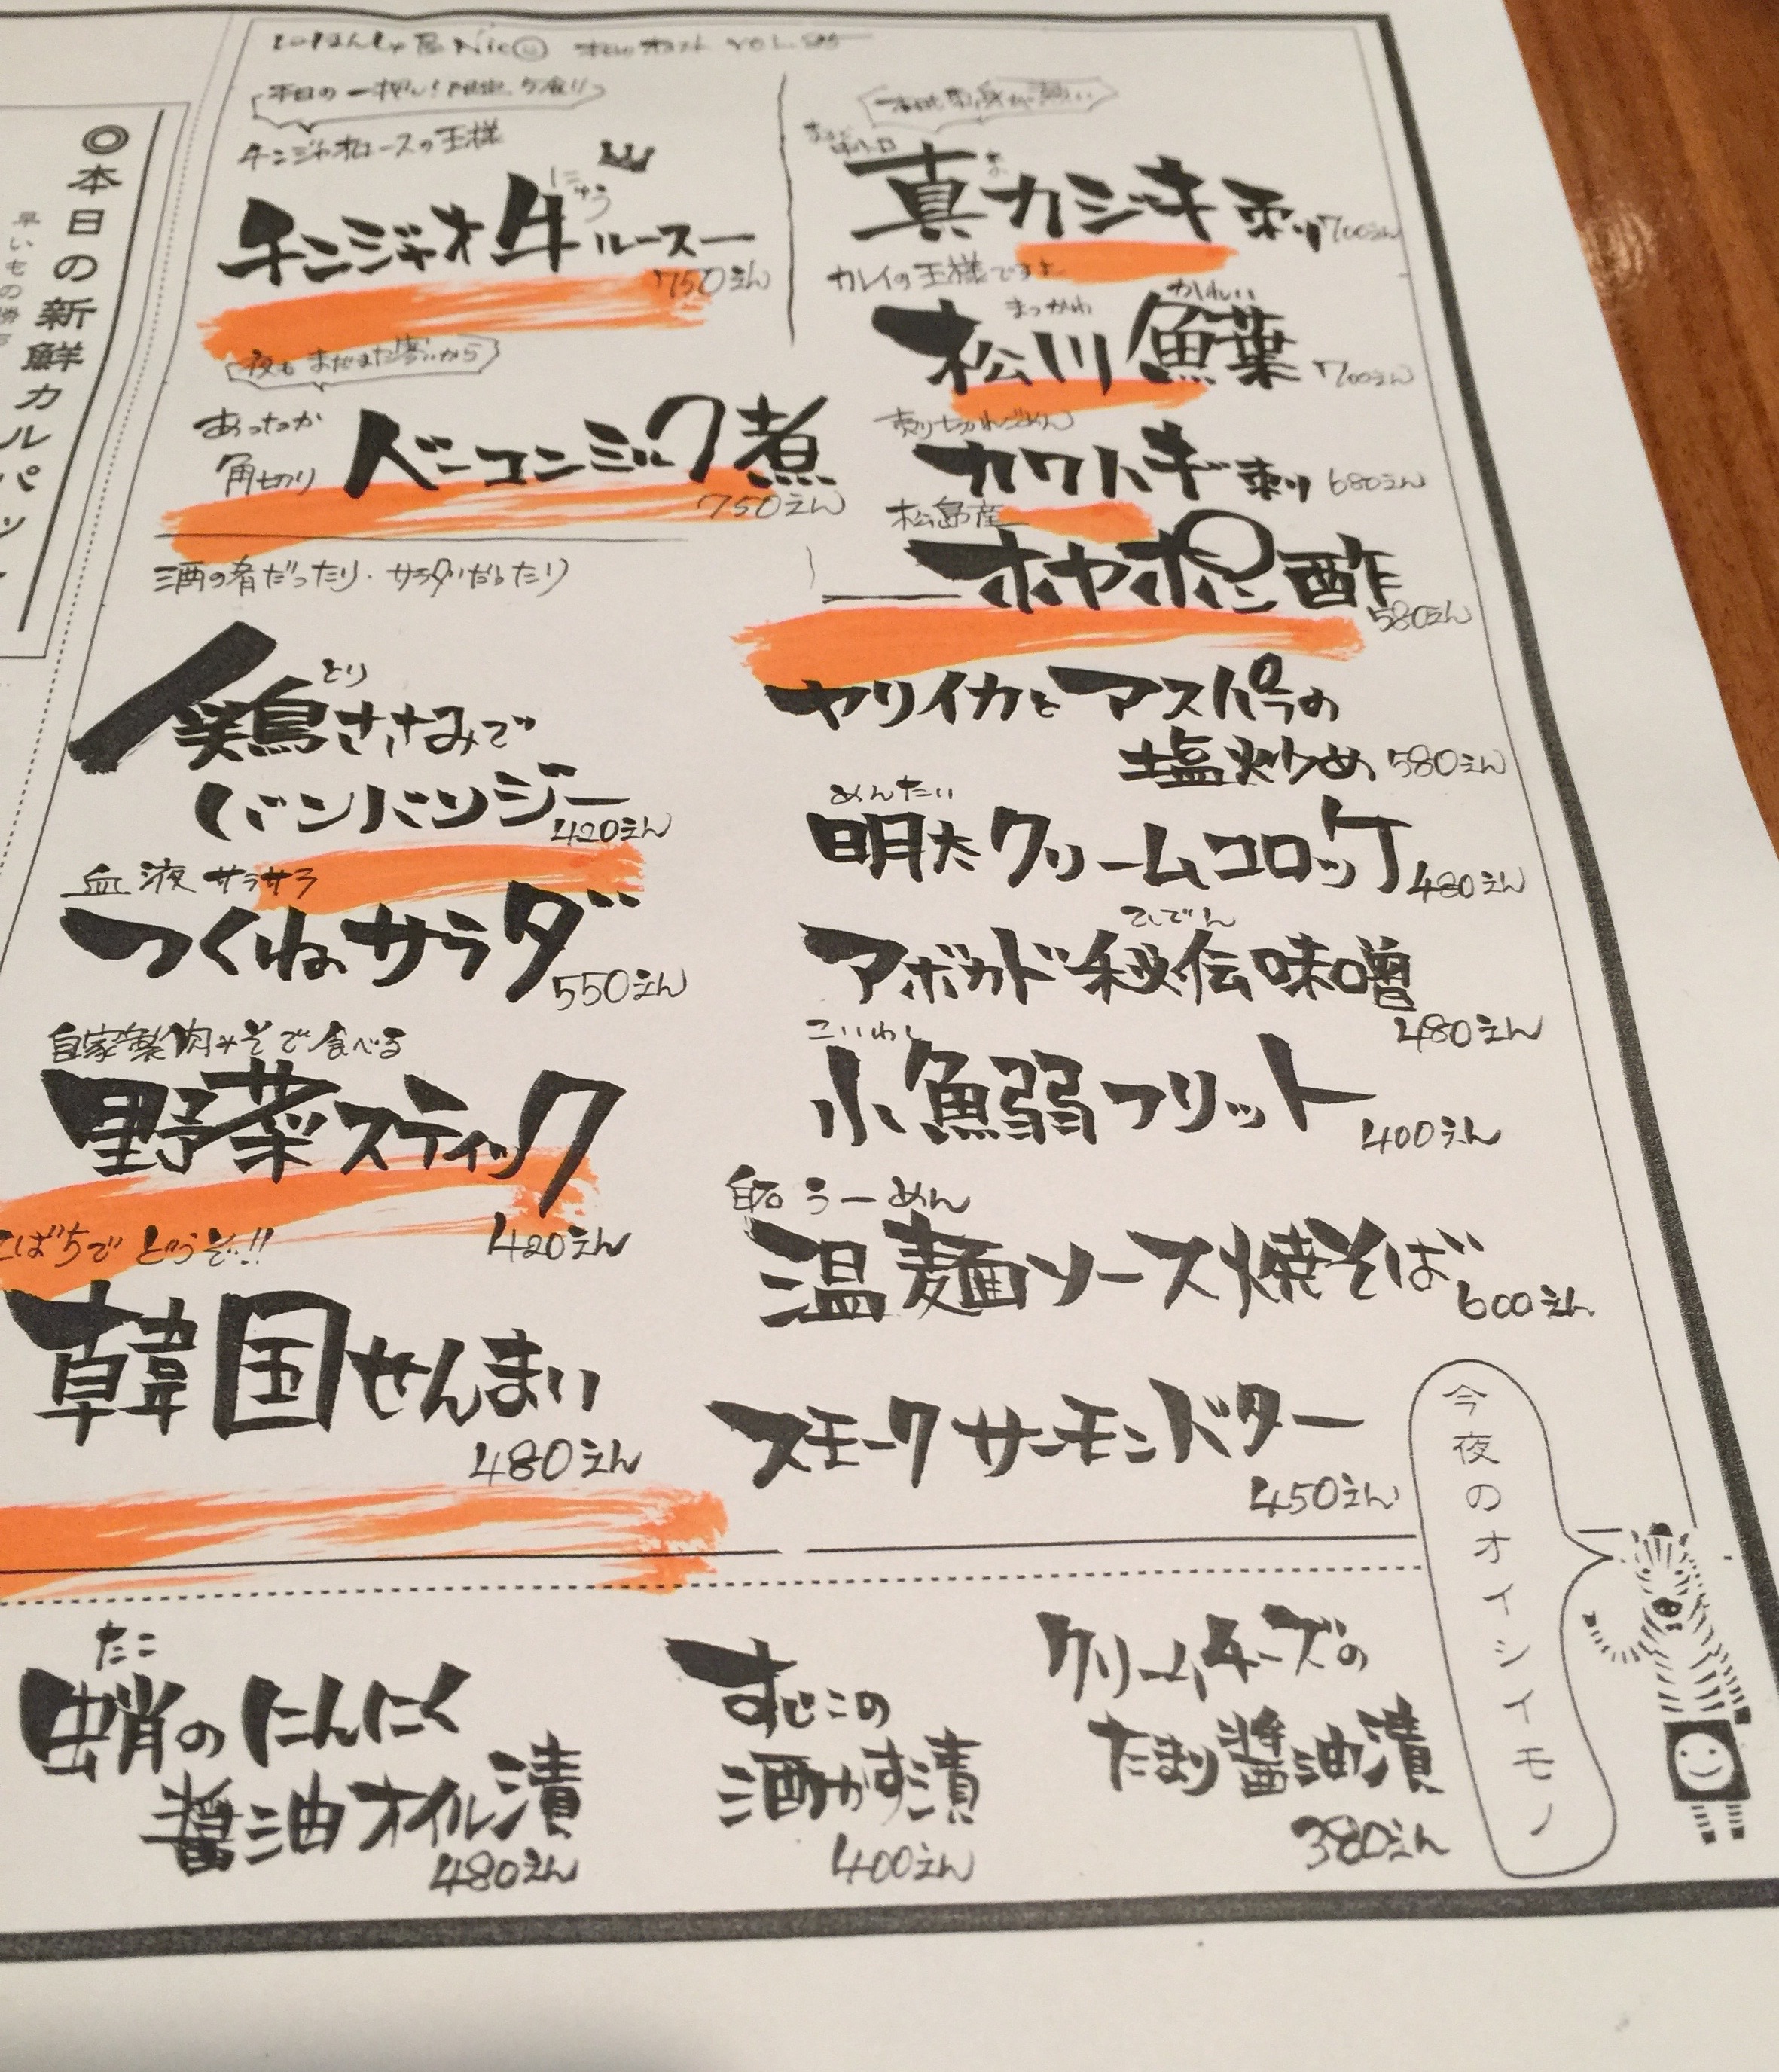 ◎本日の新鮮カルパッ
早いもの勝
チンジャオロースの王様
チンジャオ牛ルースー
にゅう
750えん
夜もまだまだ寒いから
あったか
角切り
ベーコンミルク煮
750えん
酒の肴だったり・サラダだったり
とり
鶏ささみで
バンバンジー
420えん
血液サラサラ
つくねサラダ
550えん
自家製肉みそで食べる
野菜スティック
420えん
こばちでどうぞ!!
韓国せんまい
480えん
真カジキ刺り
700えん
カレイの王様ですよ
まつかわ かれい
松川鰈
700えん
売り切れごめん
カワハギ刺り
680えん
松島産
ホヤポン酢
580えん
ヤリイカとアスパラの
塩炒め
580えん
めんたい
明太クリームコロッケ
480えん
ひでん
アボカド秘伝味噌
480えん
こいわし
小鰯フリット
400えん
白石うーめん
温麺ソース焼そば
600えん
スモークサーモンバター
450えん
たこ
蛸のにんにく
醤油オイル漬
480えん
すじこの
酒かす漬
400えん
クリームチーズの
たまり醤油漬
380えん
今夜のオイシイモノ